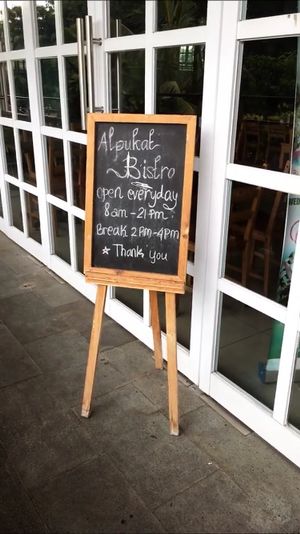 Alpukat
Bistro
open everyday
8 am - 21 Pm
Break 2 AM - 4 PM
★ Thank you